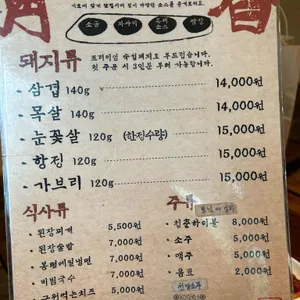 소금
와사비
쌈장
돼지류
프리미엄 숙성돼지로 부드럽습니다.
첫 주문 시 3인분 부터 가능합니다.
삼겹 140g 14,000원
목살 140g 14,000원
눈꽃살 120g (한정수량) 15,000원
항정 120g 15,000원
가브리 120g 15,000원
식사류
된장찌개 5,500원
된장술밥 7,000원
봉평메밀냉면 7,000원
비빔국수 7,000원
주류
청춘하이볼 8,000원
소주 5,000원
맥주 5,000원
음료 2,000원